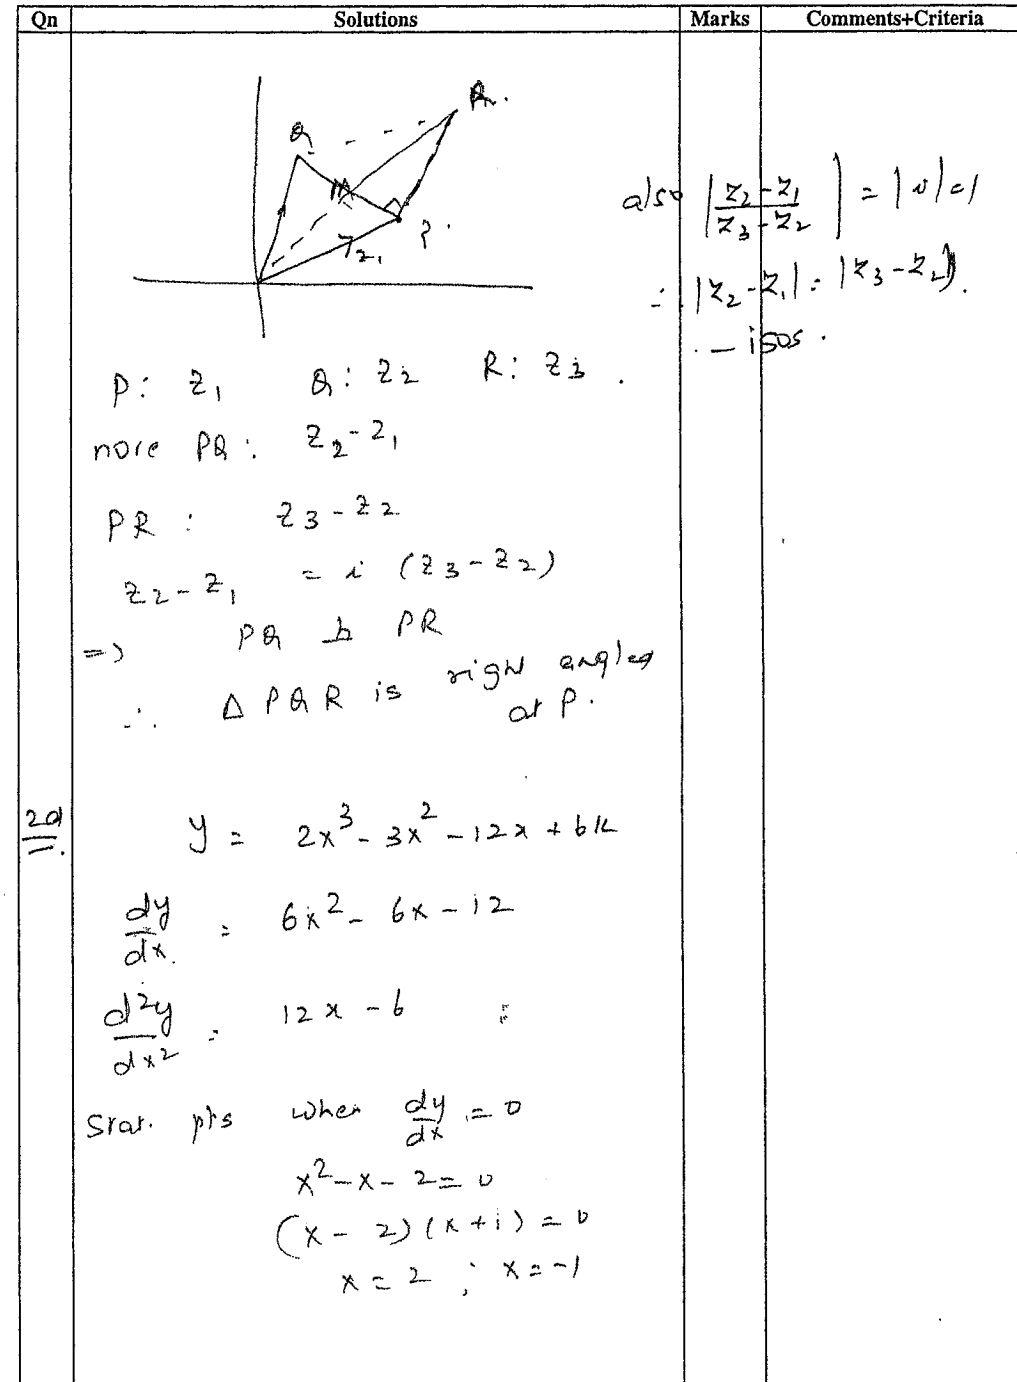 Qn Solutions Marks Comments+Criteria
R.
Q
M
P.
Z1
also |z2-z1 / z3-z2| = |i| = 1
∴ |z2-z1| = |z3-z2|.
∴ isos.
P: z1 Q: z2 R: z3.
note PQ: z2-z1
PR: z3-z2
z2-z1 = i (z3-z2)
=> PQ ⊥ PR
∴ Δ PQR is right angled
at P.
2d
y = 2x³ - 3x² - 12x + 6k
dy/dx = 6x² - 6x - 12
d²y/dx² = 12x - 6
Stat. pts when dy/dx = 0
x² - x - 2 = 0
(x - 2)(x + 1) = 0
x = 2 ; x = -1